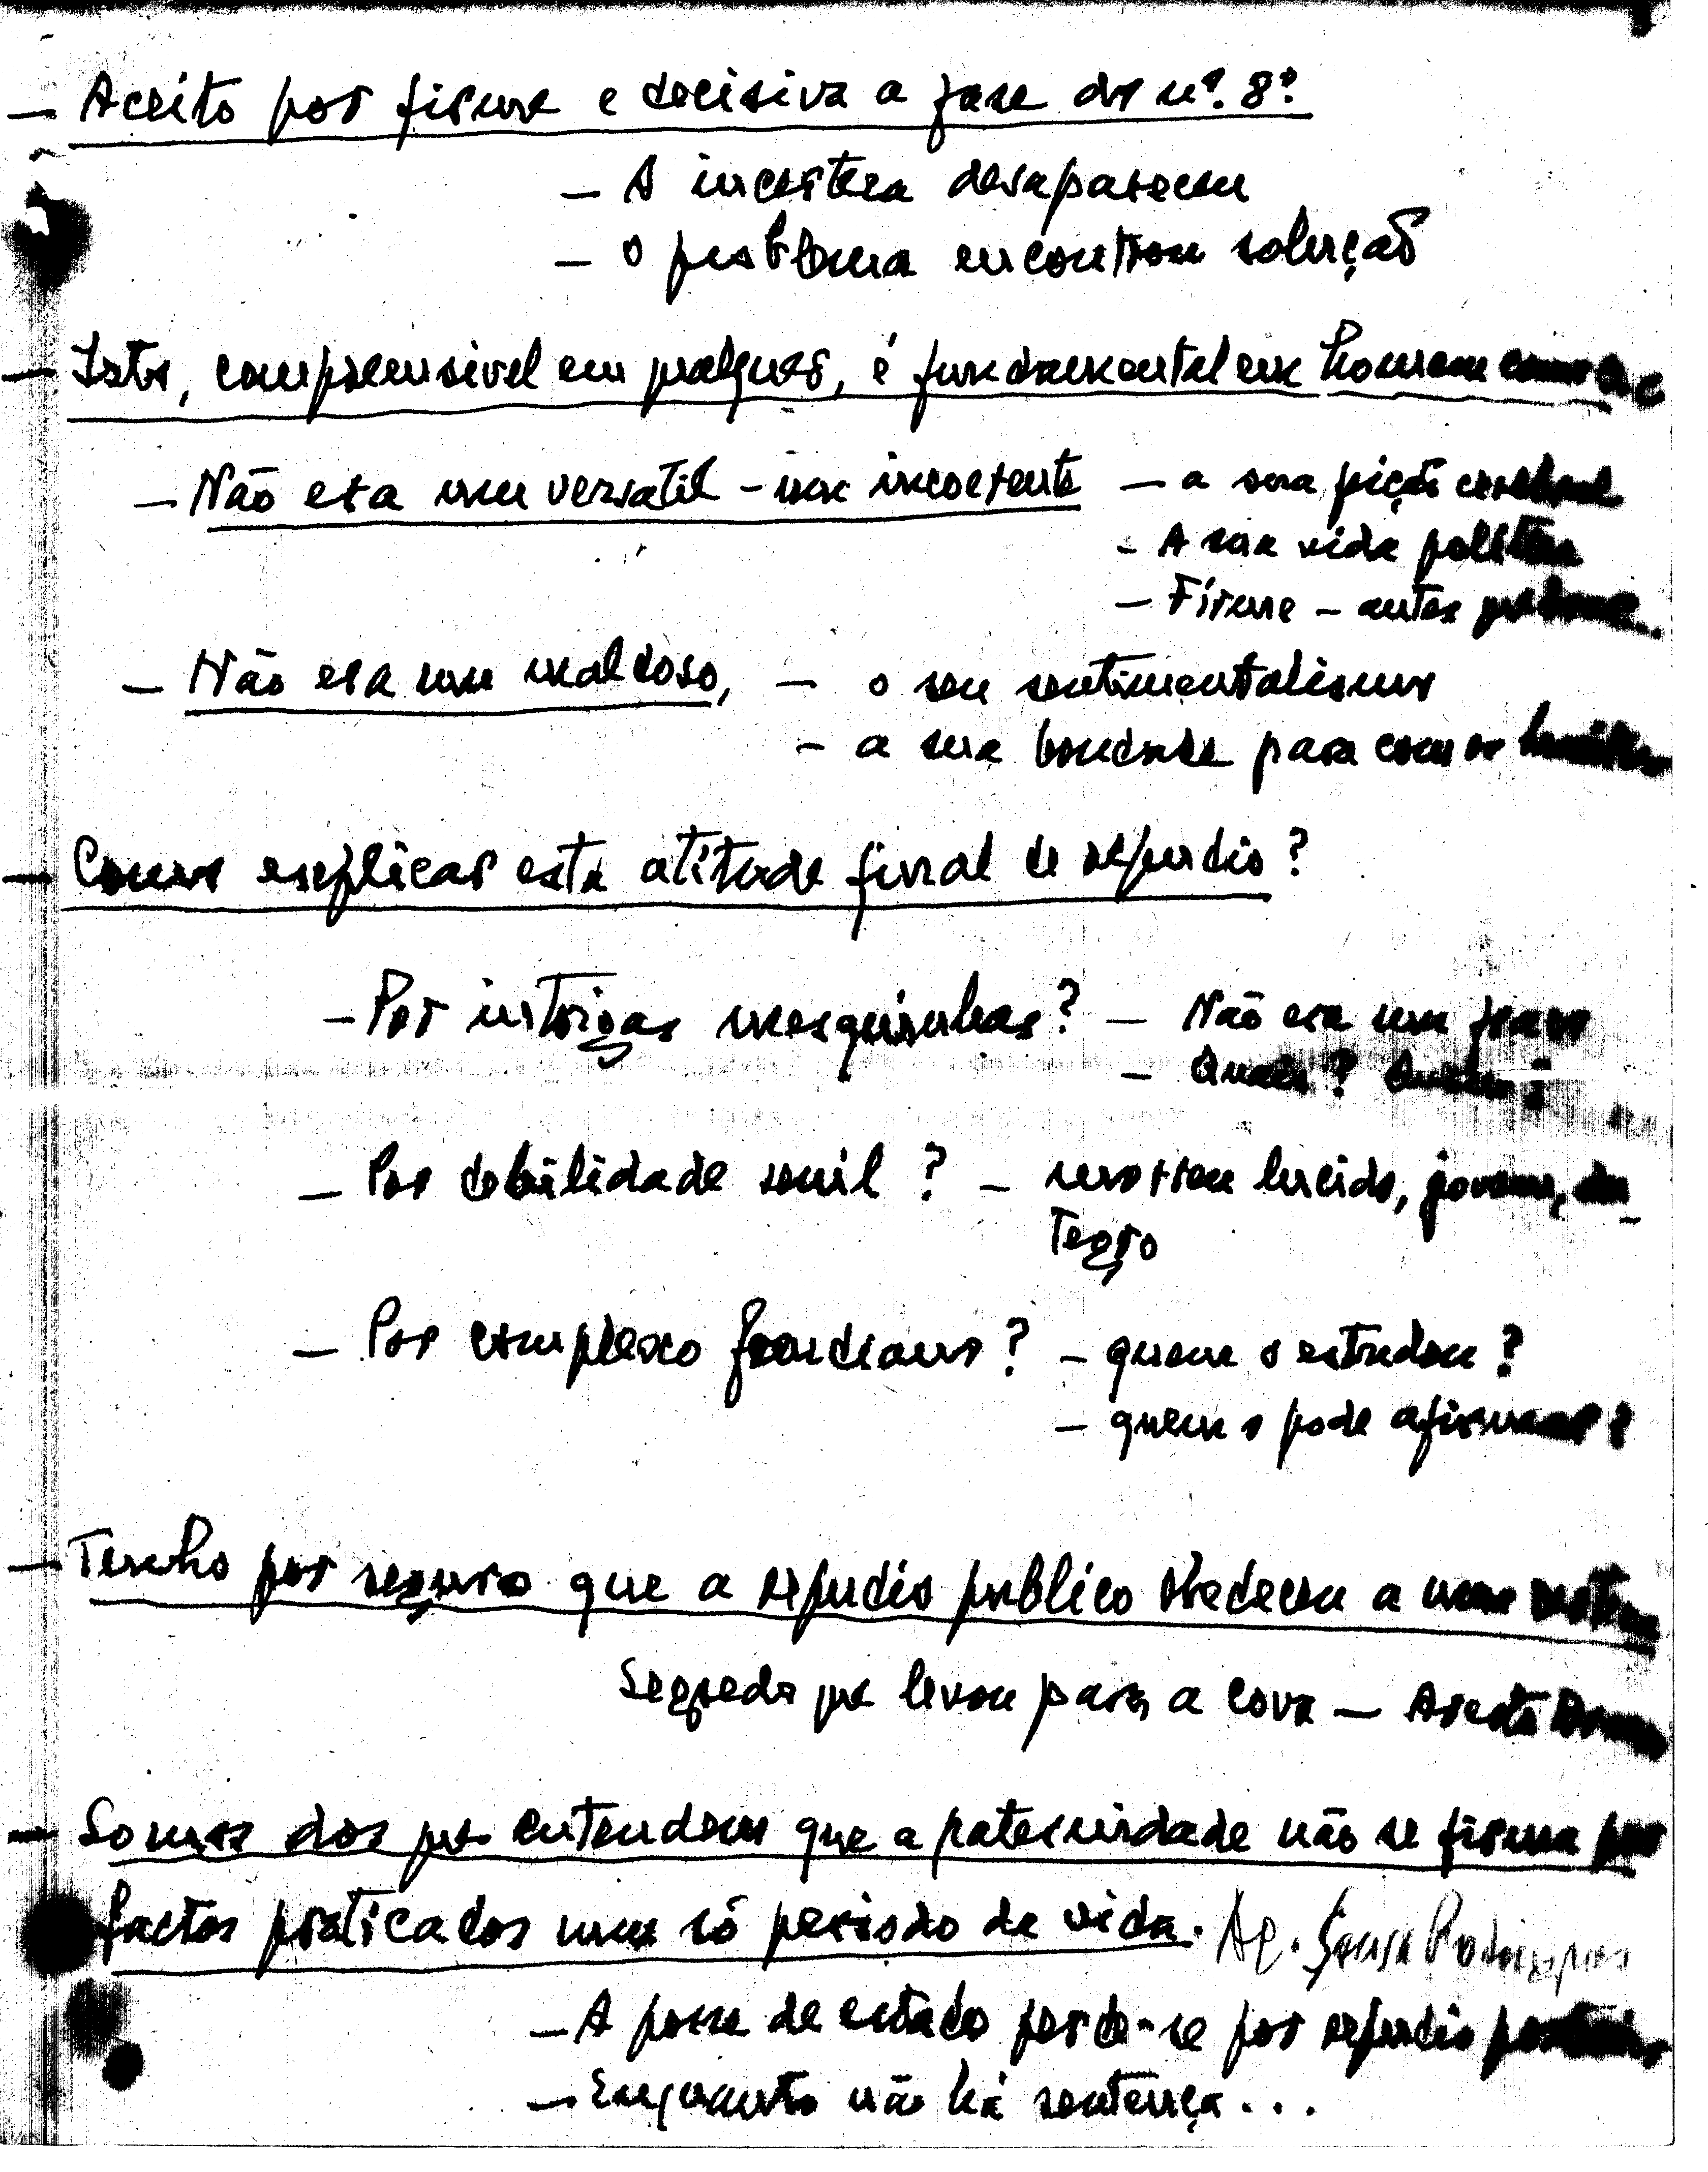 — Aceito por firme e decisiva a fase do nº. 8º.
— A incerteza desapareceu
— O problema encontrou solução
— Isto, compreensivel em qualquer, é fundamental em homem como
— Não era um versatil - um incoerente — a sua
- A sua vida politica
— Firme — antes
— Não era um maldoso, — o seu sentimentalismo
- a sua bondade para com os humildes
— Como explicar esta atitude final de repudio?
— Por intrigas mesquinhas? — Não era um fraco
— Quais? Quem
— Por debilidade senil? — morreu lucido, jovem, in-
tegro
— Por complexo freudiano? — quem o estudou?
— quem o pode afirmar?
— Tenho por seguro que o repudio publico obedeceu a uma
Segredo que levou para a cova —
— Somos dos que entendem que a paternidade não se firma por
factos praticados num só periodo da vida. Ac. Sousa Rodrigues
— A posse de estado perde-se por repudio posterior
— Enquanto não há sentença...